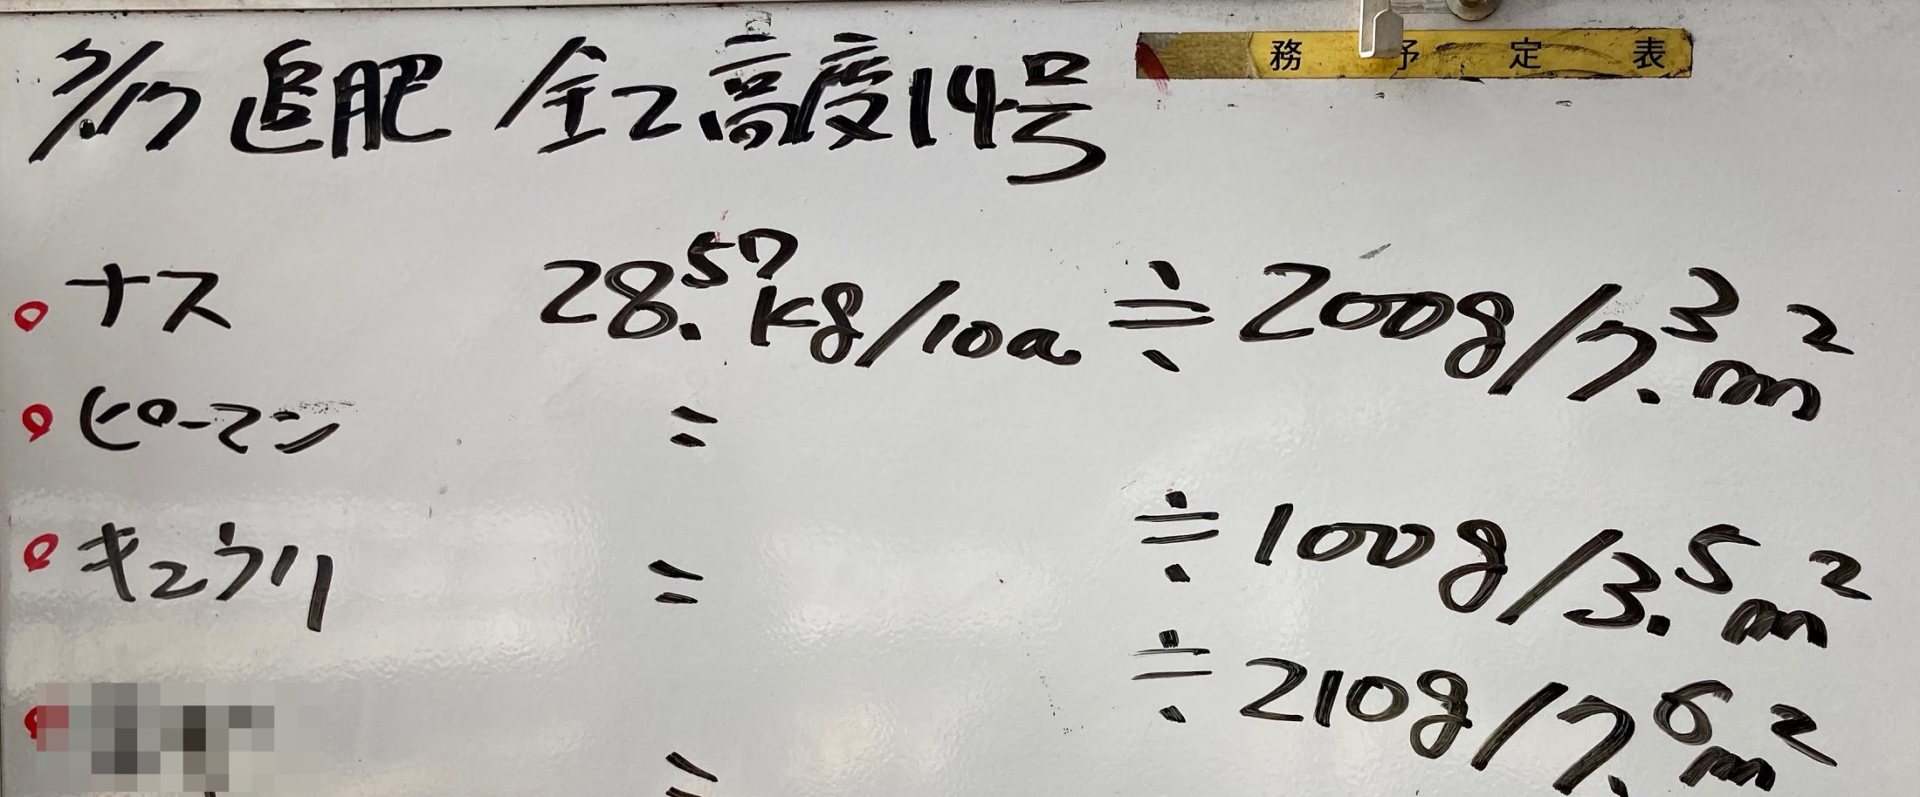 務予定表
7/17 追肥 全て高度14号
ナス 28.57kg/10a ≒ 200g/7.3m²
ピーマン 〃
キュウリ 〃 ≒ 100g/3.5m²
〃 ≒ 210g/7.6m²